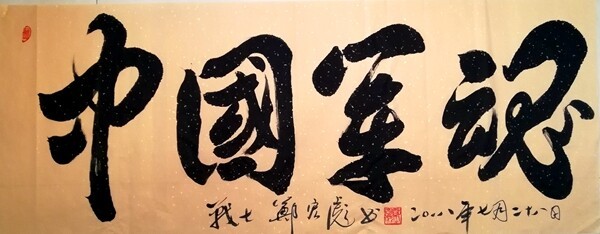 中國军魂
战士 鄭宏彪书 二〇一八年七月二十八日